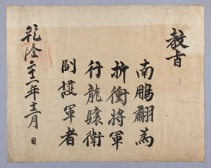 教旨
南鵬翮為
折衝將軍
行龍驤衛
副護軍者
乾隆二十一年十二月 日